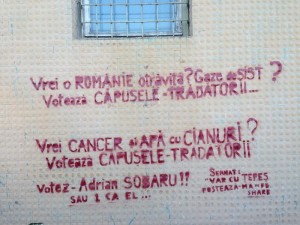 Vrei o ROMÂNIE otrăvită? Gaze de ȘIST?
Votează CĂPUSELE-TRĂDĂTORII...
Vrei CANCER și APĂ cu CIANURI?
Votează CĂPUSELE-TRĂDĂTORII
Votez - Adrian SOBARU!!
SAU 1 CA EL...
SEMNAT:
VAR CU TEPES
POSTEAZĂ-MĂ-FB
SHARE